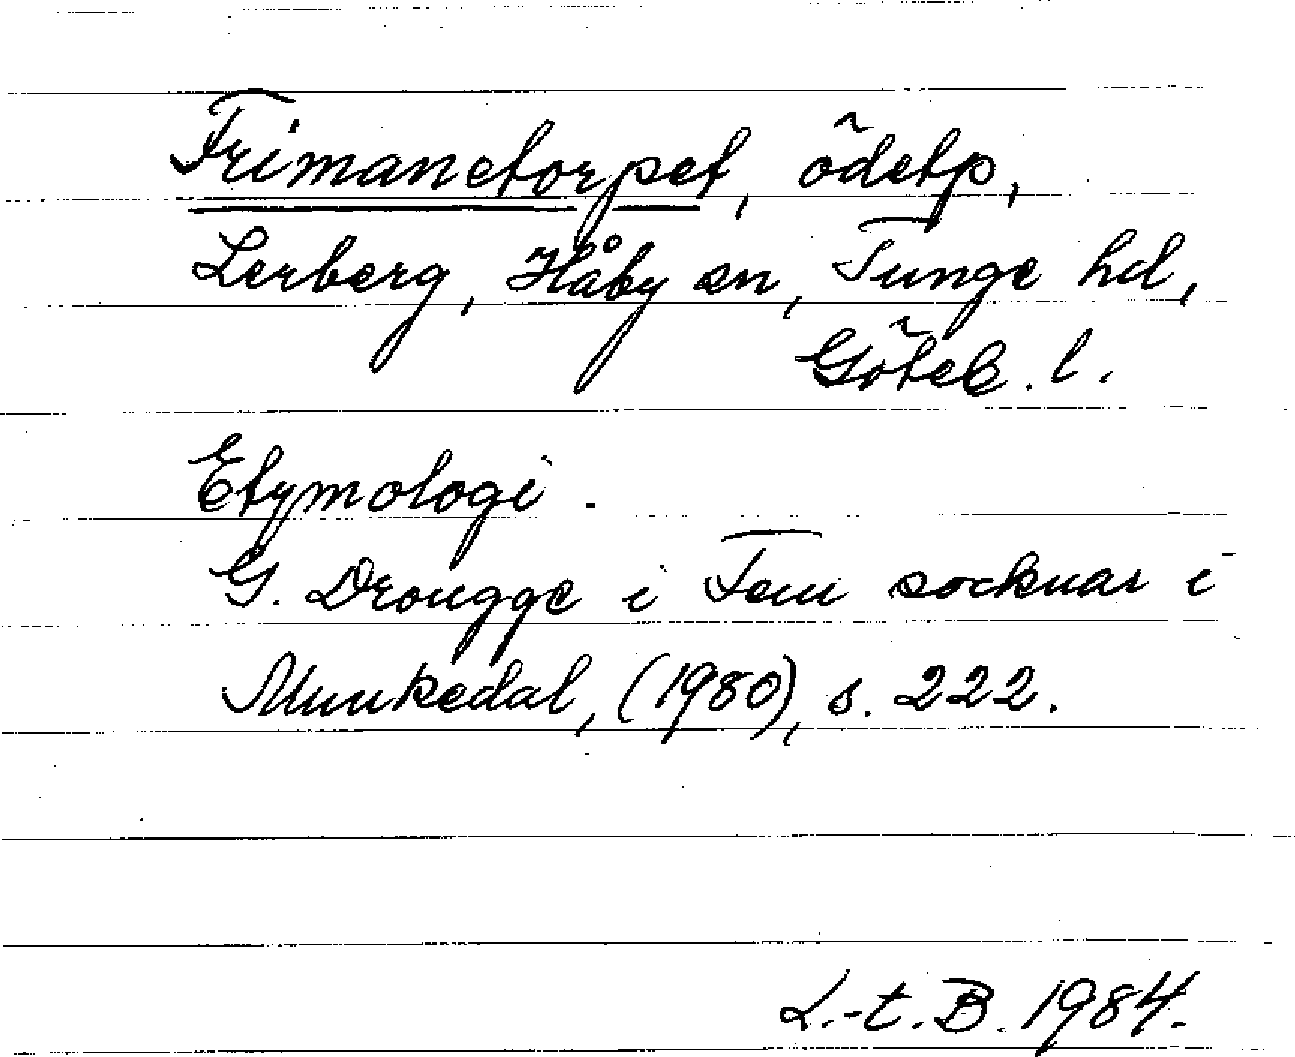 Frimanstorpet, ödetp,
Lerberg, Håby sn, Tunge hd,
Göteb. l.
Etymologi.
G. Drougge i Fem socknar i
Munkedal, (1980), s. 222.
L.-t. B. 1984.